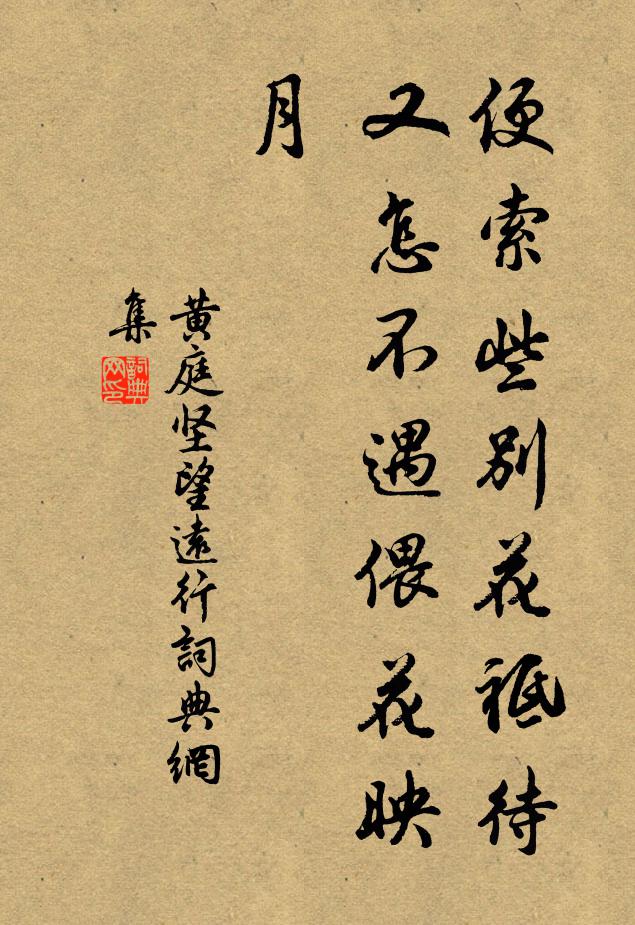 便索些别花祗待
又怎不遇偎花映
月
黄庭坚望遠行詞典網
集
詞典网印